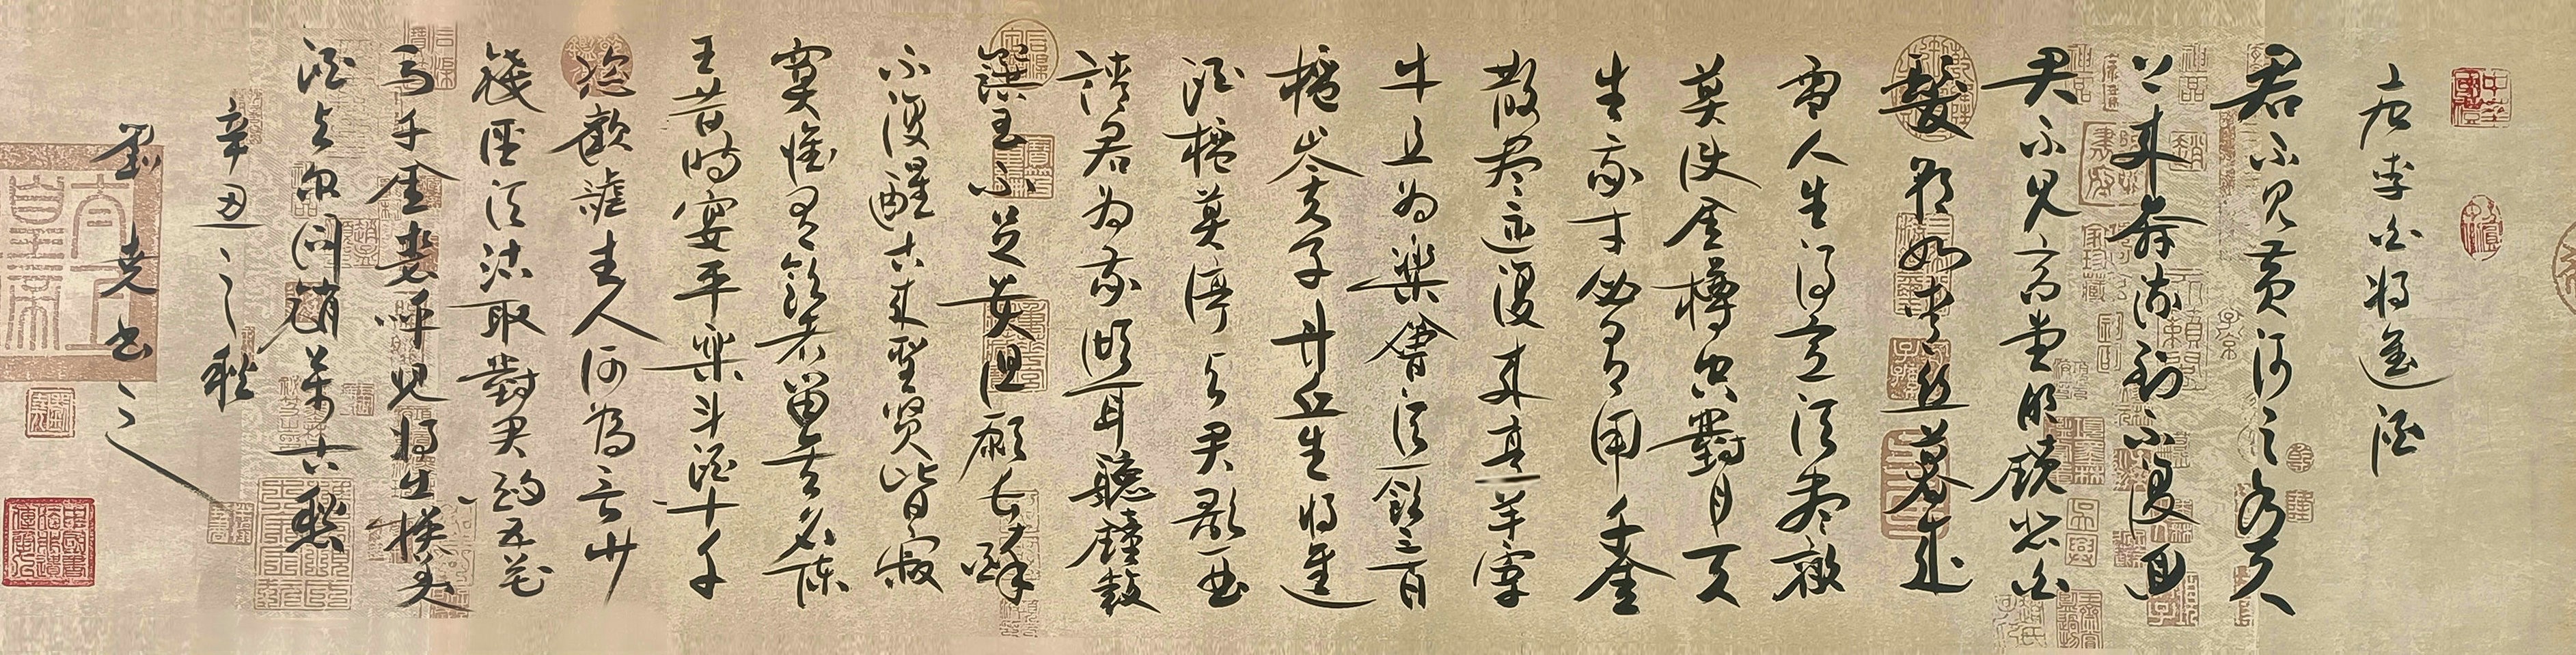 唐李白将進酒
君不見黄河之水天
上来奔流到不復回
君不見高堂明鏡悲白
髮朝如青丝暮成
雪人生得意须尽歡
莫使金樽空對月天
生我才必有用千金
散尽还復来烹羊宰
牛且为樂會须一飲三百
杯岑夫子丹丘生将進
酒杯莫停与君歌一曲
請君为我傾耳聽鐘鼓
饌玉不足貴但願长醉
不復醒古来聖贤皆寂
寞惟有飲者留其名陈
王昔時宴平樂斗酒十千
恣歡謔主人何為言少
錢径须沽取對君酌五花
馬千金裘呼兒将出换美
酒与尔同销萬古愁
辛丑之秋
劉尧书之